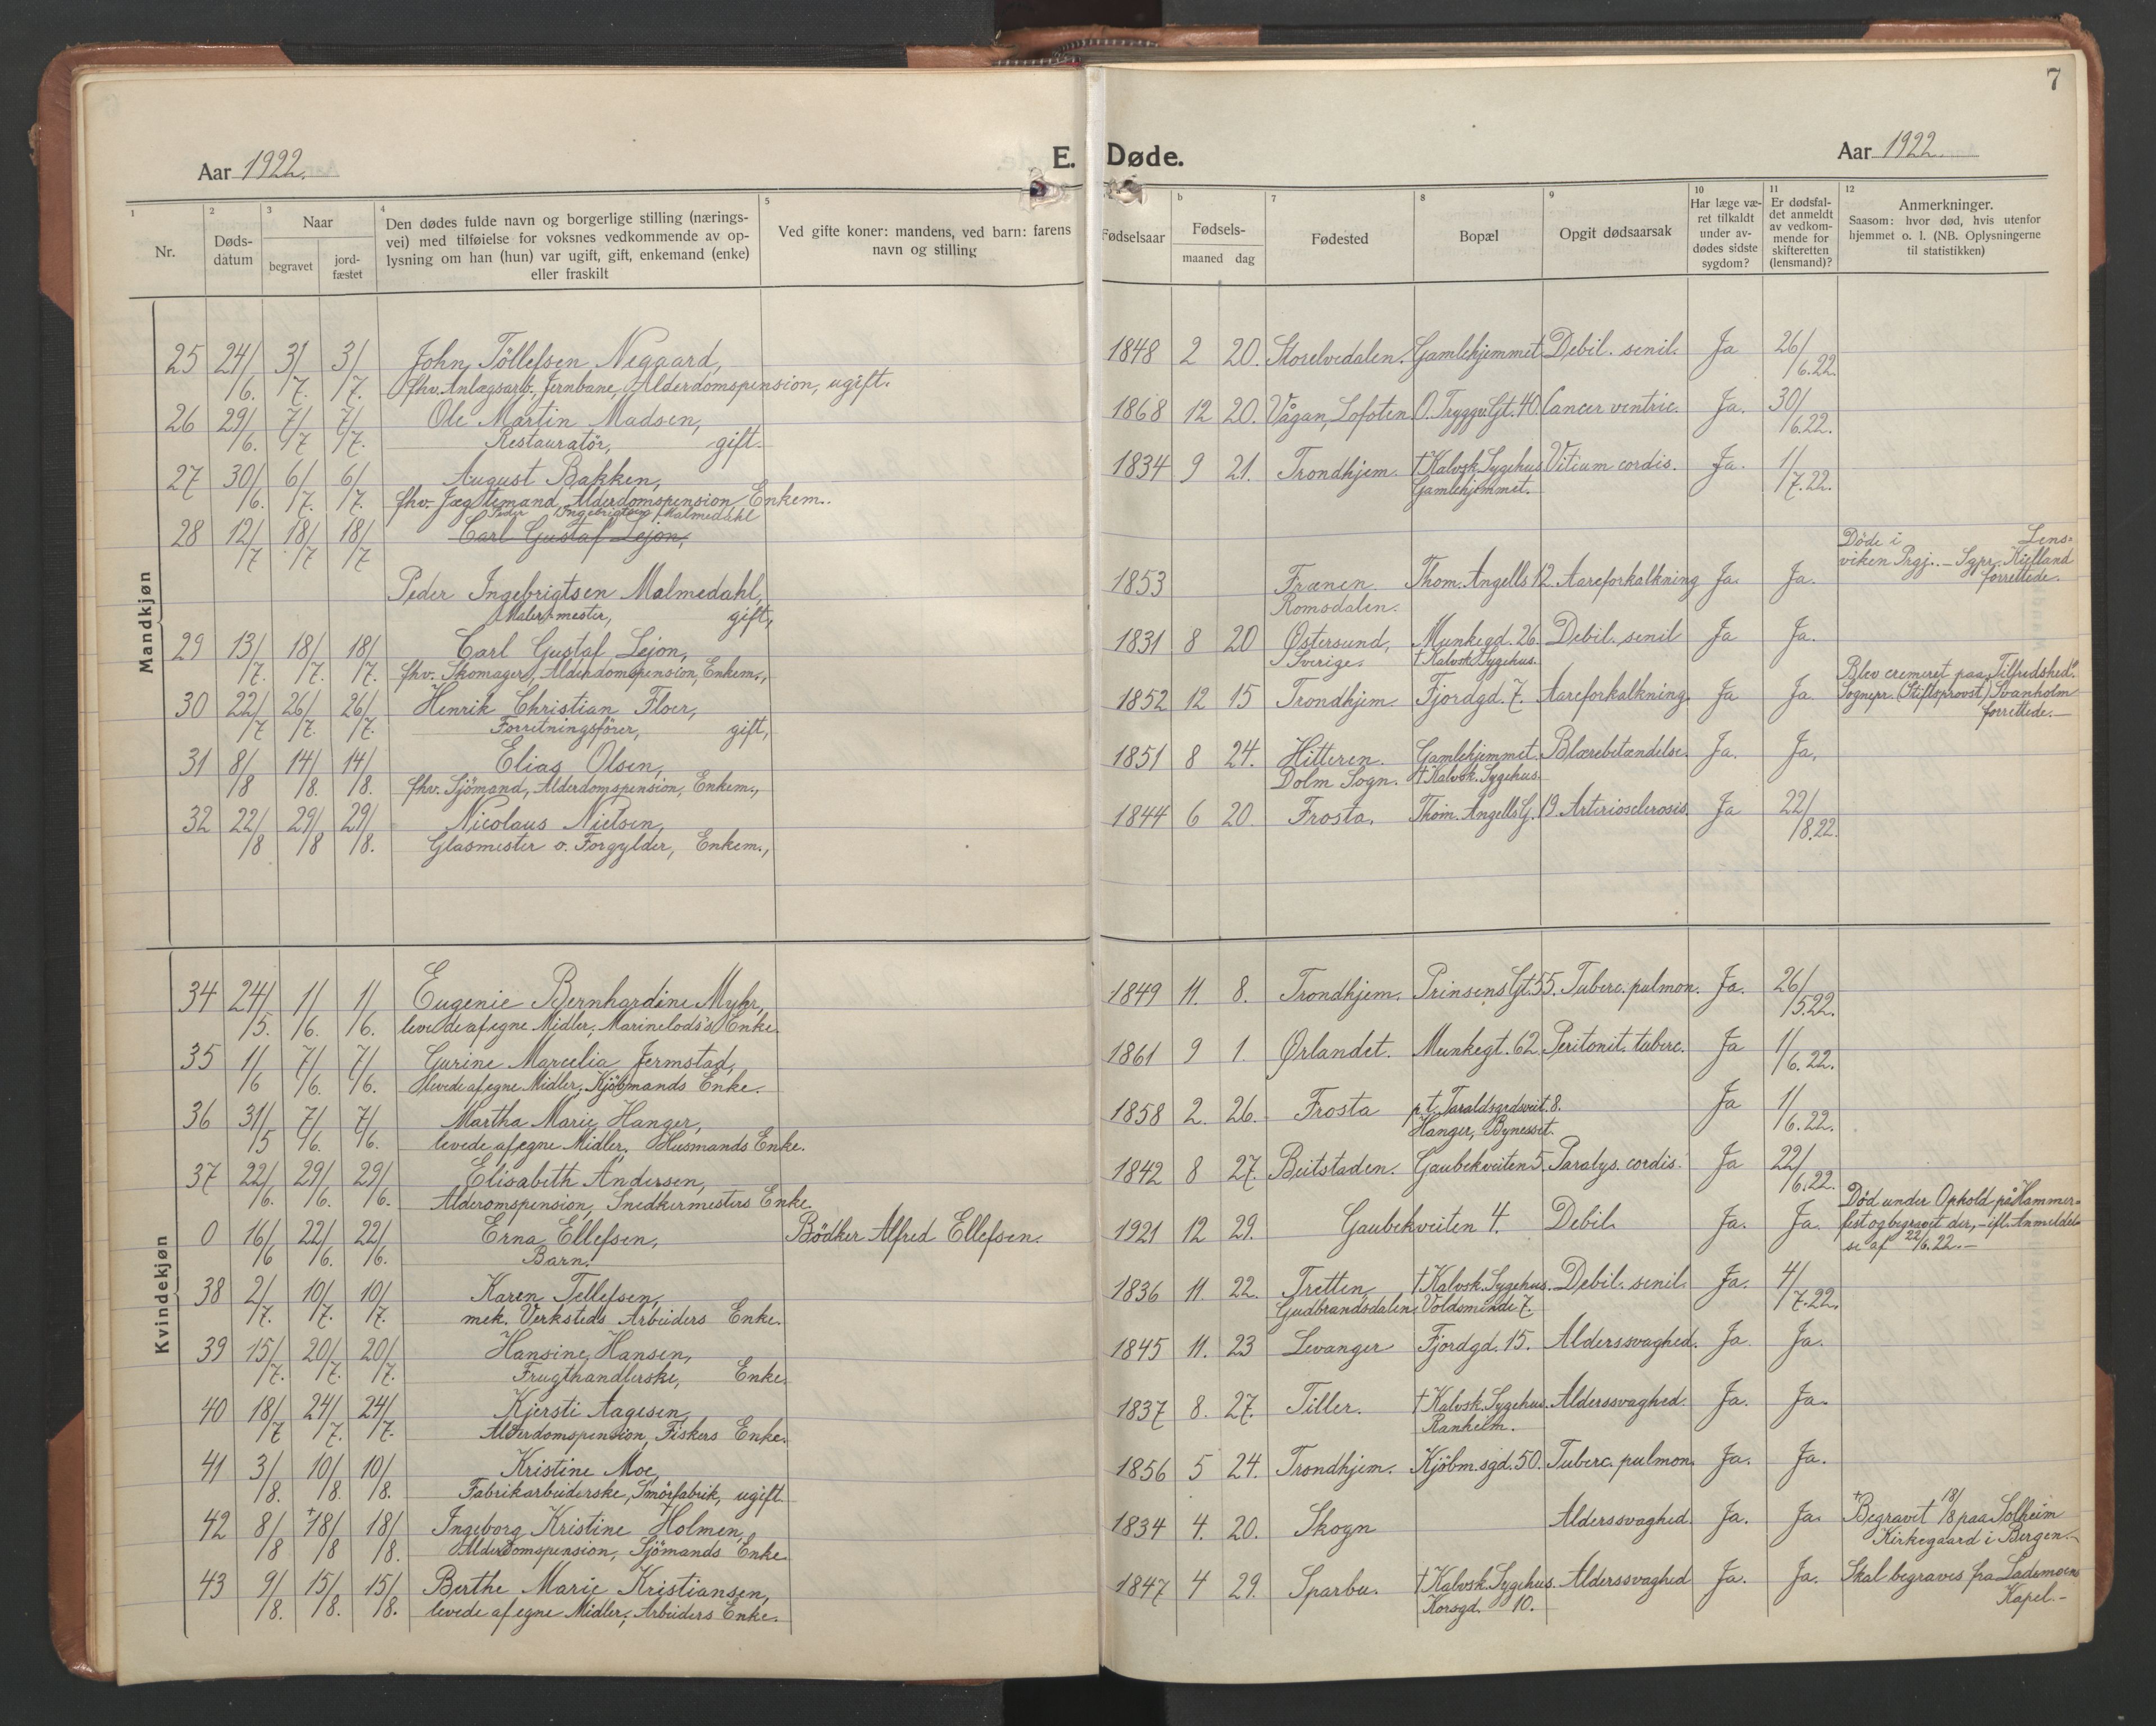 7
Aar 1922.
E. Døde.
Aar 1922.
1 2 3 4 5 b 7 8 9 10 11 12
Nr.
Døds-
datum
Naar
begravet
jord-
fæstet
Den dødes fulde navn og borgerlige stilling (nærings-
vei) med tilføielse for voksnes vedkommende av op-
lysning om han (hun) var ugift, gift, enkemand (enke)
eller fraskilt
Ved gifte koner: mandens, ved barn: farens
navn og stilling
Fødselsaar
Fødsels-
maaned dag
Fødested
Bopæl
Opgit dødsaarsak
Har læge væ-
ret tilkaldt
under av-
dødes sidste
sygdom?
Er dødsfal-
det anmeldt
av vedkom-
mende for
skifteretten
(lensmand)?
Anmerkninger.
Saasom: hvor død, hvis utenfor
hjemmet o. l. (NB. Oplysningerne
til statistikken)
Mandkjøn
25 24/6. 3/7. 3/7. John Töllefsen Negaard, 1848 2 20. Storelvedalen. Gamlehjemmet Debil. senil. Ja 26/6.22.
fhv. Anlægsarb., Jernbane, Alderdomspension, ugift.
26 29/6. 7/7 7/7. Ole Martin Madsen, 1868 12 20. Vågan, Lofoten. O. Tryggv.Gt. 40. Cancer ventric. Ja. 30/6.22.
Restauratör, gift.
27 30/6. 6/7. 6/7. August Bakken, 1834 9 21. Trondhjem. †Kalvsk. Sygehus Vitium cordis. Ja. 1/7.22.
fhv. Jægtemand, Alderdomspension Enkem.. Gamlehjemmet.
Peder Ingebrigtsen Malmedahl
28 12/7 18/7 18/7 Carl Gustaf Lejon,
Døde i Lens-
viken Prgj. – Sgpr. Kielland
forrettede.
Peder Ingebrigtsen Malmedahl, 1853 Frænen Thom. Angells 12 Aareforkalkning Ja. Ja.
Malermester, gift, Romsdalen.
29 13/7. 18/7. 18/7. Carl Gustaf Lejon, 1831 8 20 Östersund, Munkegd. 26. Debil. senil Ja Ja.
fhv. Skomager, Alderdomspension, Enkem., Sverige. †Kalvsk Sygehus.
30 22/7 26/7. 26/7. Henrik Christian Floer, 1852 12 15 Trondhjem. Fjordgd. 7. Aareforkalkning. Ja Ja
Forretningsfører, gift,
Blev cremeret paa „Tilfredshed“.
Sognepr. (Stiftsprovst) Svanholm
forrettede.—
31 8/8 14/8. 14/8. Elias Olsen, 1851 8 24. Hitteren. Gamlehjemmet. Blærebetændelse. Ja. Ja.
fhv. Sjömand, Alderdomspension, Enkem., Dolm Sogn. †Kalvsk. Sygehus.
32 22/8 29/8 29/8. Nicolaus Nielsen, 1844 6 20. Frosta. Thom. Angells G. 19. Arteriosclerosis. Ja 22/8.22.
Glasmester o. Forgylder, Enkem.,
Kvindekjøn
34 24/5. 1/6. 1/6. Eugenie Bernhardine Myhr, 1849 11. 8. Trondhjem. Prinsens Gt. 55. Tuberc. pulmon. Ja. 26/5.22.
levede af egne Midler, Marinelods's Enke.
35 1/6 7/6. 7/6. Gurine Marcelia Jermstad, 1861 9 1. Ørlandet. Munkegt. 62. Peritonit. tuberc. Ja 1/6.22.
levede af egne Midler, Kjöbmands Enke.
36 31/5 7/6. 7/6. Martha Marie Hanger, 1858 2. 26. Frosta p.t. Taraldsgrdsveit. 8. Ja 1/6.22.
levede af egne Midler, Husmands Enke. Hanger, Bynesset.
37 22/6. 29/6. 29/6. Elisabeth Andersen, 1842 8 27. Beitstaden. Gaubekveiten 5. Paralys. cordis. Ja 22/6.22.
Alderomspension, Snedkermesters Enke.
0 16/6 22/6. 22/6. Erna Ellefsen, Bödker Alfred Ellefsen. 1921 12 29. Gaubekveiten 4. Debil. Ja. Ja.
Barn.
Död under Ophold på Hammer-
fest og begravet der, – ifl. Anmeldel-
se af 22/6.22.—
38 2/7. 10/7. 10/7. Karen Tellefsen, 1836 11 22. Tretten †Kalvsk. Sygehus. Debil. senil. Ja. 4/7.22.
mek. Verksteds Arbeiders Enke. Gudbrandsdalen Voldsminde 7.
39 15/7. 20/7. 20/7. Hansine Hansen, 1845 11. 23 Levanger Fjordgd. 15. Alderssvaghed. Ja. Ja.
Frugthandlerske, Enke.
40 18/7 24/7. 24/7. Kjersti Aagesen, 1837 8. 27. Tiller. †Kalvsk. Sygehus. Alderssvaghed. Ja. Ja.
Alderdomspension, Fiskers Enke. Ranheim.
41 3/8. 10/8. 10/8. Kristine Moe, 1856 5 24. Trondhjem. Kjöbm.sgd. 50. Tuberc. pulmon. Ja. Ja.
Fabrikarbeiderske, Smörfabrik, ugift.
42 8/8 †18/8 18/8. Ingeborg Kristine Holmen, 1834 4. 20. Skogn Alderssvaghed. Ja. Ja.
Alderdomspension, Sjömands Enke.
†Begravet 18/8 paa Solheim
Kirkegaard i Bergen.—
43 9/8. 15/8. 15/8. Berthe Marie Kristiansen, 1847 4 29. Sparbu. †Kalvsk. Sygehus. Alderssvaghed Ja. Ja. Skal begraves fra Lademoens
levede af egne Midler, Arbeiders Enke. Korsgd. 10. Kapel.—